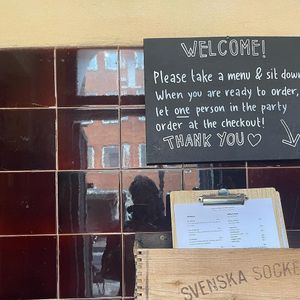 WELCOME!
Please take a menu & sit down
When you are ready to order,
let one person in the party
order at the checkout!
THANK YOU♡
SVENSKA SOCKE